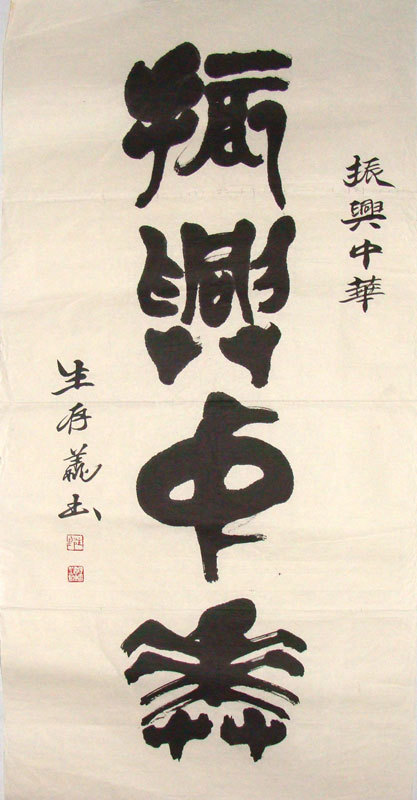 振興中華
振興中華
生存義书